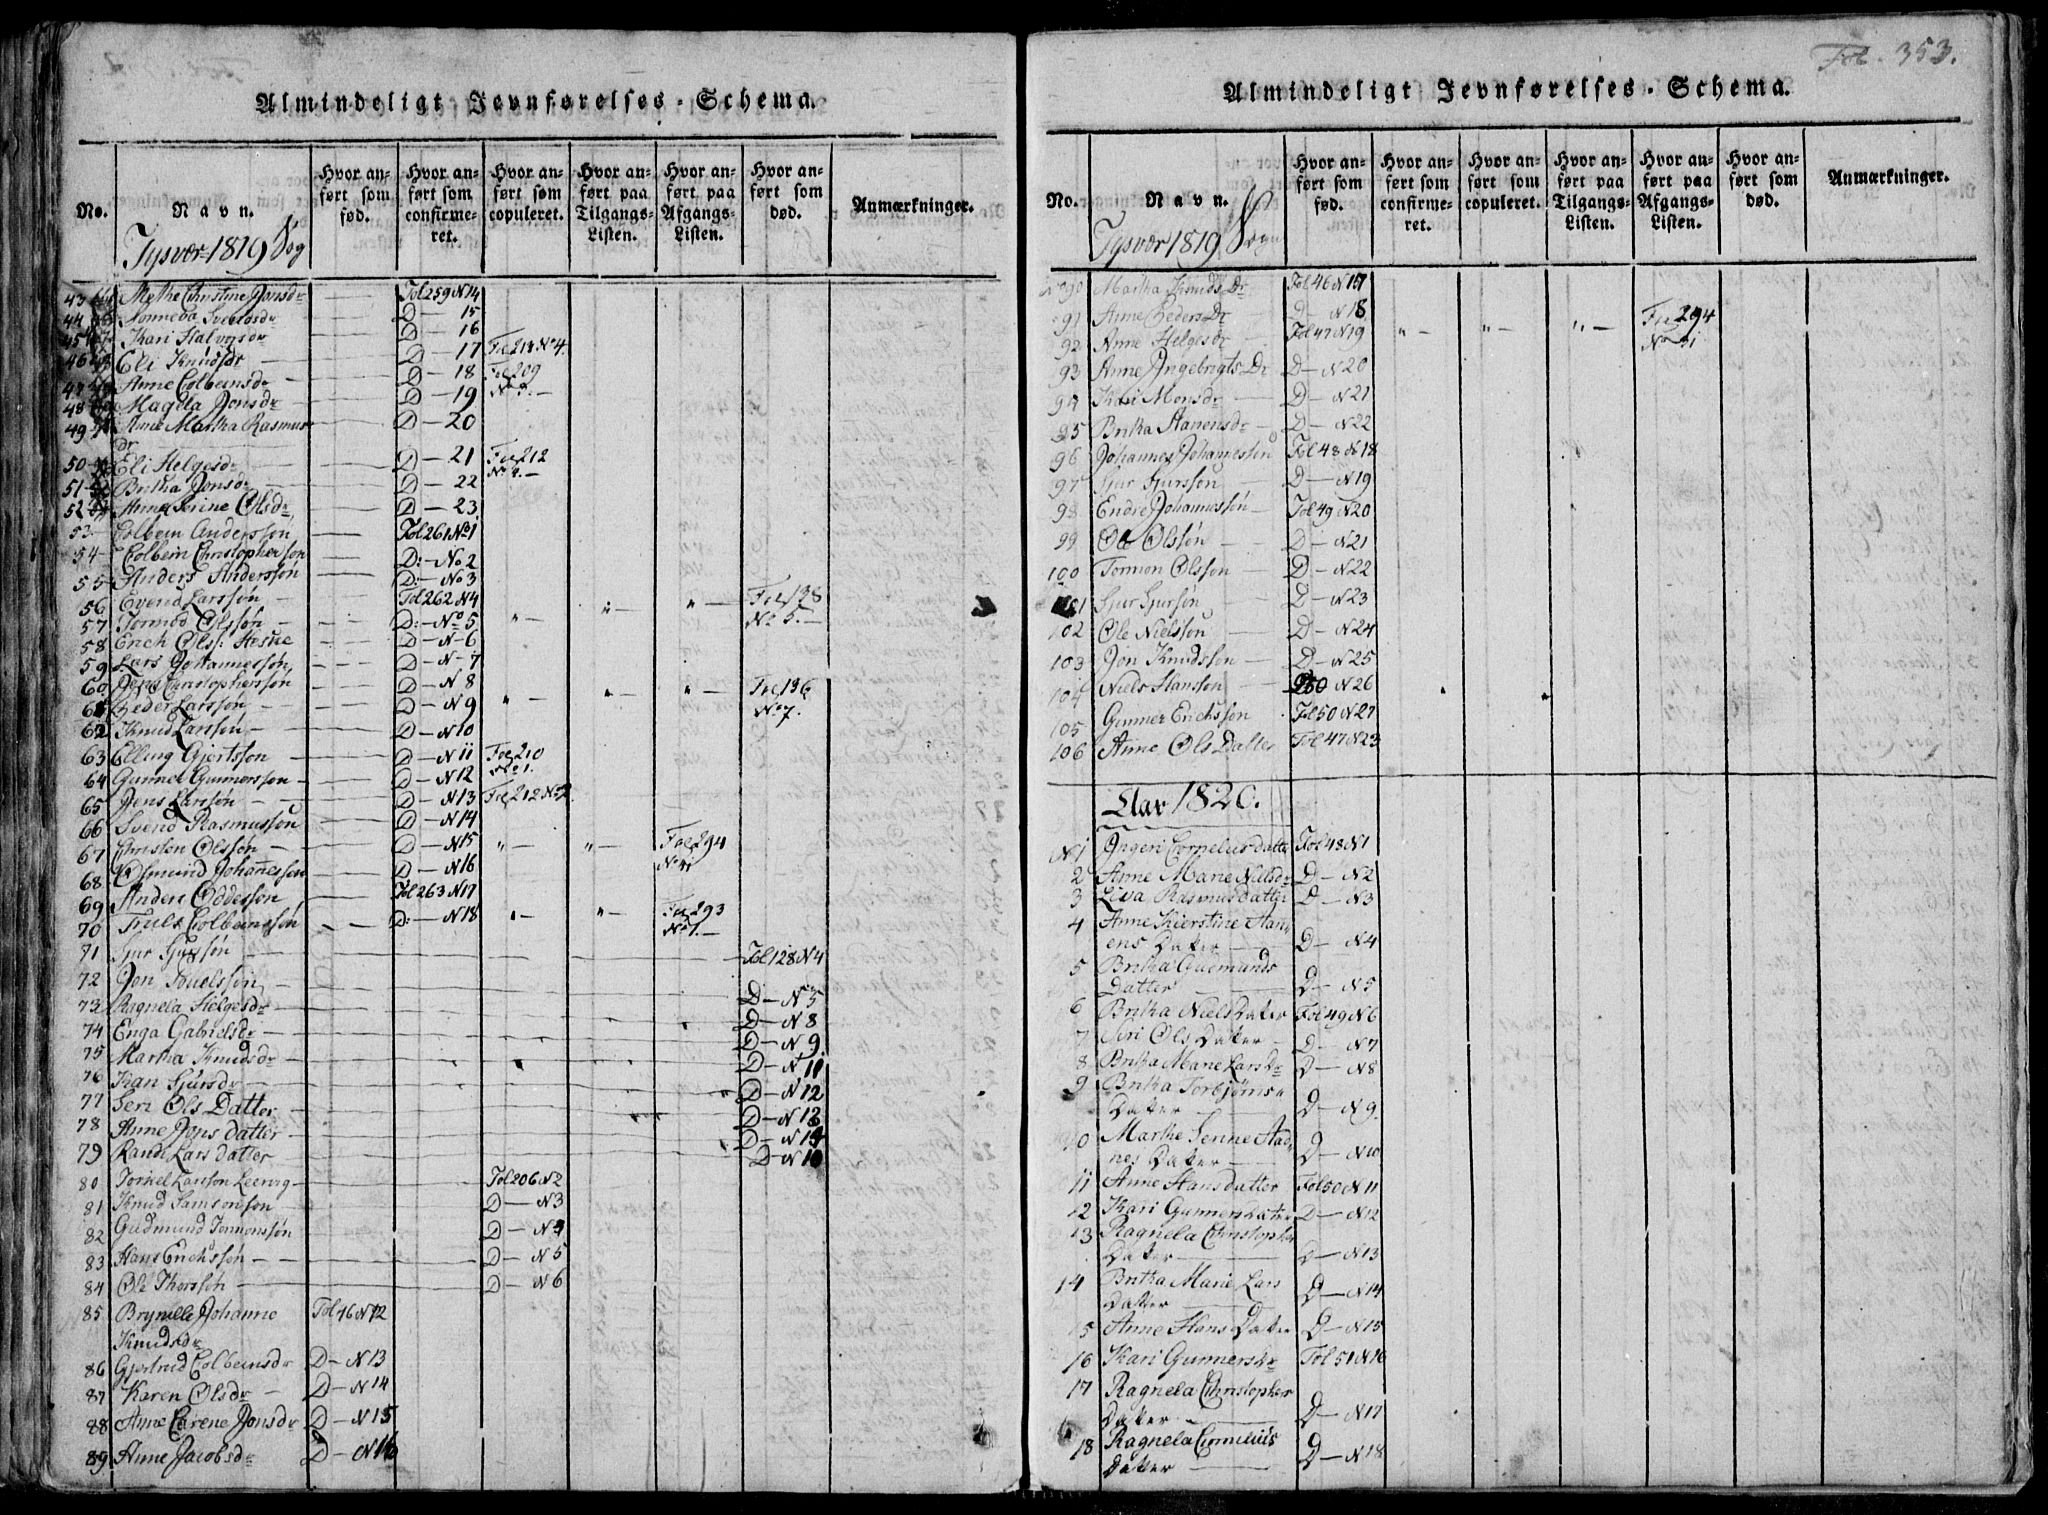 Almindeligt Jevnførelses-Schema.
No.
Navn.
Hvor anført som fød.
Hvor anført som confirmeret.
Hvor anført som copuleret.
Hvor anført paa Tilgangs-Listen.
Hvor anført paa Afgangs-Listen.
Hvor anført som død.
Anmærkninger.
Tysvær 1819 Sog
43 Methe Christine Jonsdr Fol 259 N 14
44 Sversdr D — 15
45 Kari Halvorsdr D — 16
46 Eli Knudsdr D — 17 Fol 213 No 4.
47 Anne Colbeinsdr D — 18 Fol 209
48 Magela Jonsdr D — 19
49 Anne Martha Rasmus D — 20
dr
50 Eli Helgesdr D — 21 Fol 212
51 Britha Jonsdr D — 22
52 Anne Serine Olsdr D — 23
53 Colbein Anderssøn Fol 261 No 1
54 Colbein Christophersøn D: — No 2
55 Anders Anderssøn D: — No 3
56 Evend Larssøn Fol 262 N 4 Fol 138
57 Tormod Olssøn D: — No 5 " — " — " — No 5. —
58 Erich Olss: Hesne D — N — 6
59 Lars Johannessøn D — N — 7
60 Jens Christophersøn D — N 8 Fol 136
61 Peder Larssøn D — N 9 " " — " — No 7.
62 Knud Larssøn D — N 10
63 Elling Gjertssøn D — N 11 Fol 210
64 Gunner Gunnerssøn D — N 12 No 1.
65 Jens Larssøn D — N 13 Fol 212 No 2
66 Svend Rasmussøn D — N 14
67 Christen Olssøn D — N 15 " — " — Fol 294
68 Osmund Johannessøn D — N 16
69 Anders Oddessøn Fol 263 N 17
70 Truls Colbeinssøn D: — N 18 " — " — Fol 293
No 1. —
71 Sjur Sjurssøn Fol 128 N 4
72 Jon Knelssøn D — N 5
73 Ragnela Helgesdr D — N 8
74 Enga Gabrielsdr D — N 9
75 Martha Knudsdr D — N 11
76 Kari Sjursdr D — N 12
77 Seri Ols Datter D — N 13
78 Anne Jons datter D — N 14
79 Randi Lars datter D — N 10
80 Torkel Larssøn Leervig Fol 206 N 2
81 Knud Samsonsøn D — N 3
82 Gudmund Tormonssøn D — N 4
83 Hans Erichssøn D — N 5
84 Ole Thorssøn D — N 6
85 Brynille Johanne Fol 46 N 12
Knudsdr
86 Gjertrud Colbeinsdr D — N 13
87 Karen Olsdr D — N 14
88 Anne Carene Jonsdr D — N 15
89 Anne Jacobsdr D — N 16
Fol. 353.
Almindeligt Jevnførelses-Schema.
No.
Navn.
Hvor anført som fød.
Hvor anført som confirmeret.
Hvor anført som copuleret.
Hvor anført paa Tilgangs-Listen.
Hvor anført paa Afgangs-Listen.
Hvor anført som død.
Anmærkninger.
Tysvær 1819 Sogn
No 90 Martha Knuds Dr Fol 46 N 17
91 Anne Peders Dr D — N 18
92 Anne Helgesdr Fol 47 N 19 " — " — " — Fol 294
93 Anne Ingebrigts Dr D — N 20
94 Kari Monsdr D — N 21
95 Britha Hanensdr D — N 22
96 Johannes Johannessøn Fol 48 N 18
97 Sjur Sjurssøn D — N 19
98 Endre Johannessøn Fol 49 N 20
99 Ole Olssøn D — N 21
100 Tormon Olssøn D — N 22
101 Sjur Sjursøn D — N 23
102 Ole Nielssøn D — N 24
103 Jon Knudssøn D — N 25
104 Niels Hanssøn N 26
105 Gunner Erichssøn Fol 50 N 27
106 Anne Ols Datter Fol 47 N 23
Aar 1820.
N 1 Ingeri Cornelius datter Fol 48 N 1
2 Anne Marie Nielsdr D — N 2
3 Liva Rasmusdatter D — N 3
4 Anne Kierstine Han
ens Datter D — N 4
5 Britha Gudmunds
Datter D — N 5
6 Britha Niels Datter Fol 49 N 6
7 Siri Ols Datter D — N 7
8 Britha Marie Lars Dr D — N 8
9 Britha Torbjørns
Datter D — N 9
10 Marthe Serine Aad
nes Datter D — N 10
11 Anne Hans datter Fol 50 N 11
12 Kari Gunners datter D — N 12
13 Ragnela Christopher
Datter D — N 13
14 Britha Marie Lars
Datter D — N 14
15 Anne Hans Datter D — N 15
16 Kari Gunnersdr Fol 51 N 16
17 Ragnela Christopher
Datter D — N 17
18 Ragnela Cornelius
Datter D — N 18